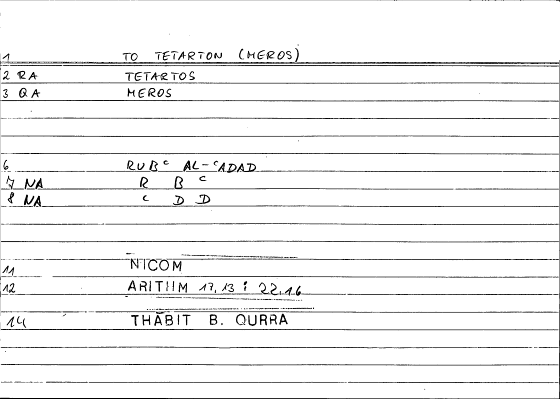 1 TO TETARTON (MEROS)
2 RA TETARTOS
3 QA MEROS
6 RUBᶜ AL-ᶜADAD
7 NA R B ᶜ
8 NA ᶜ D D
11 NICOM
12 ARITHM 17,13 : 22,16
14 THĀBIT B. QURRA